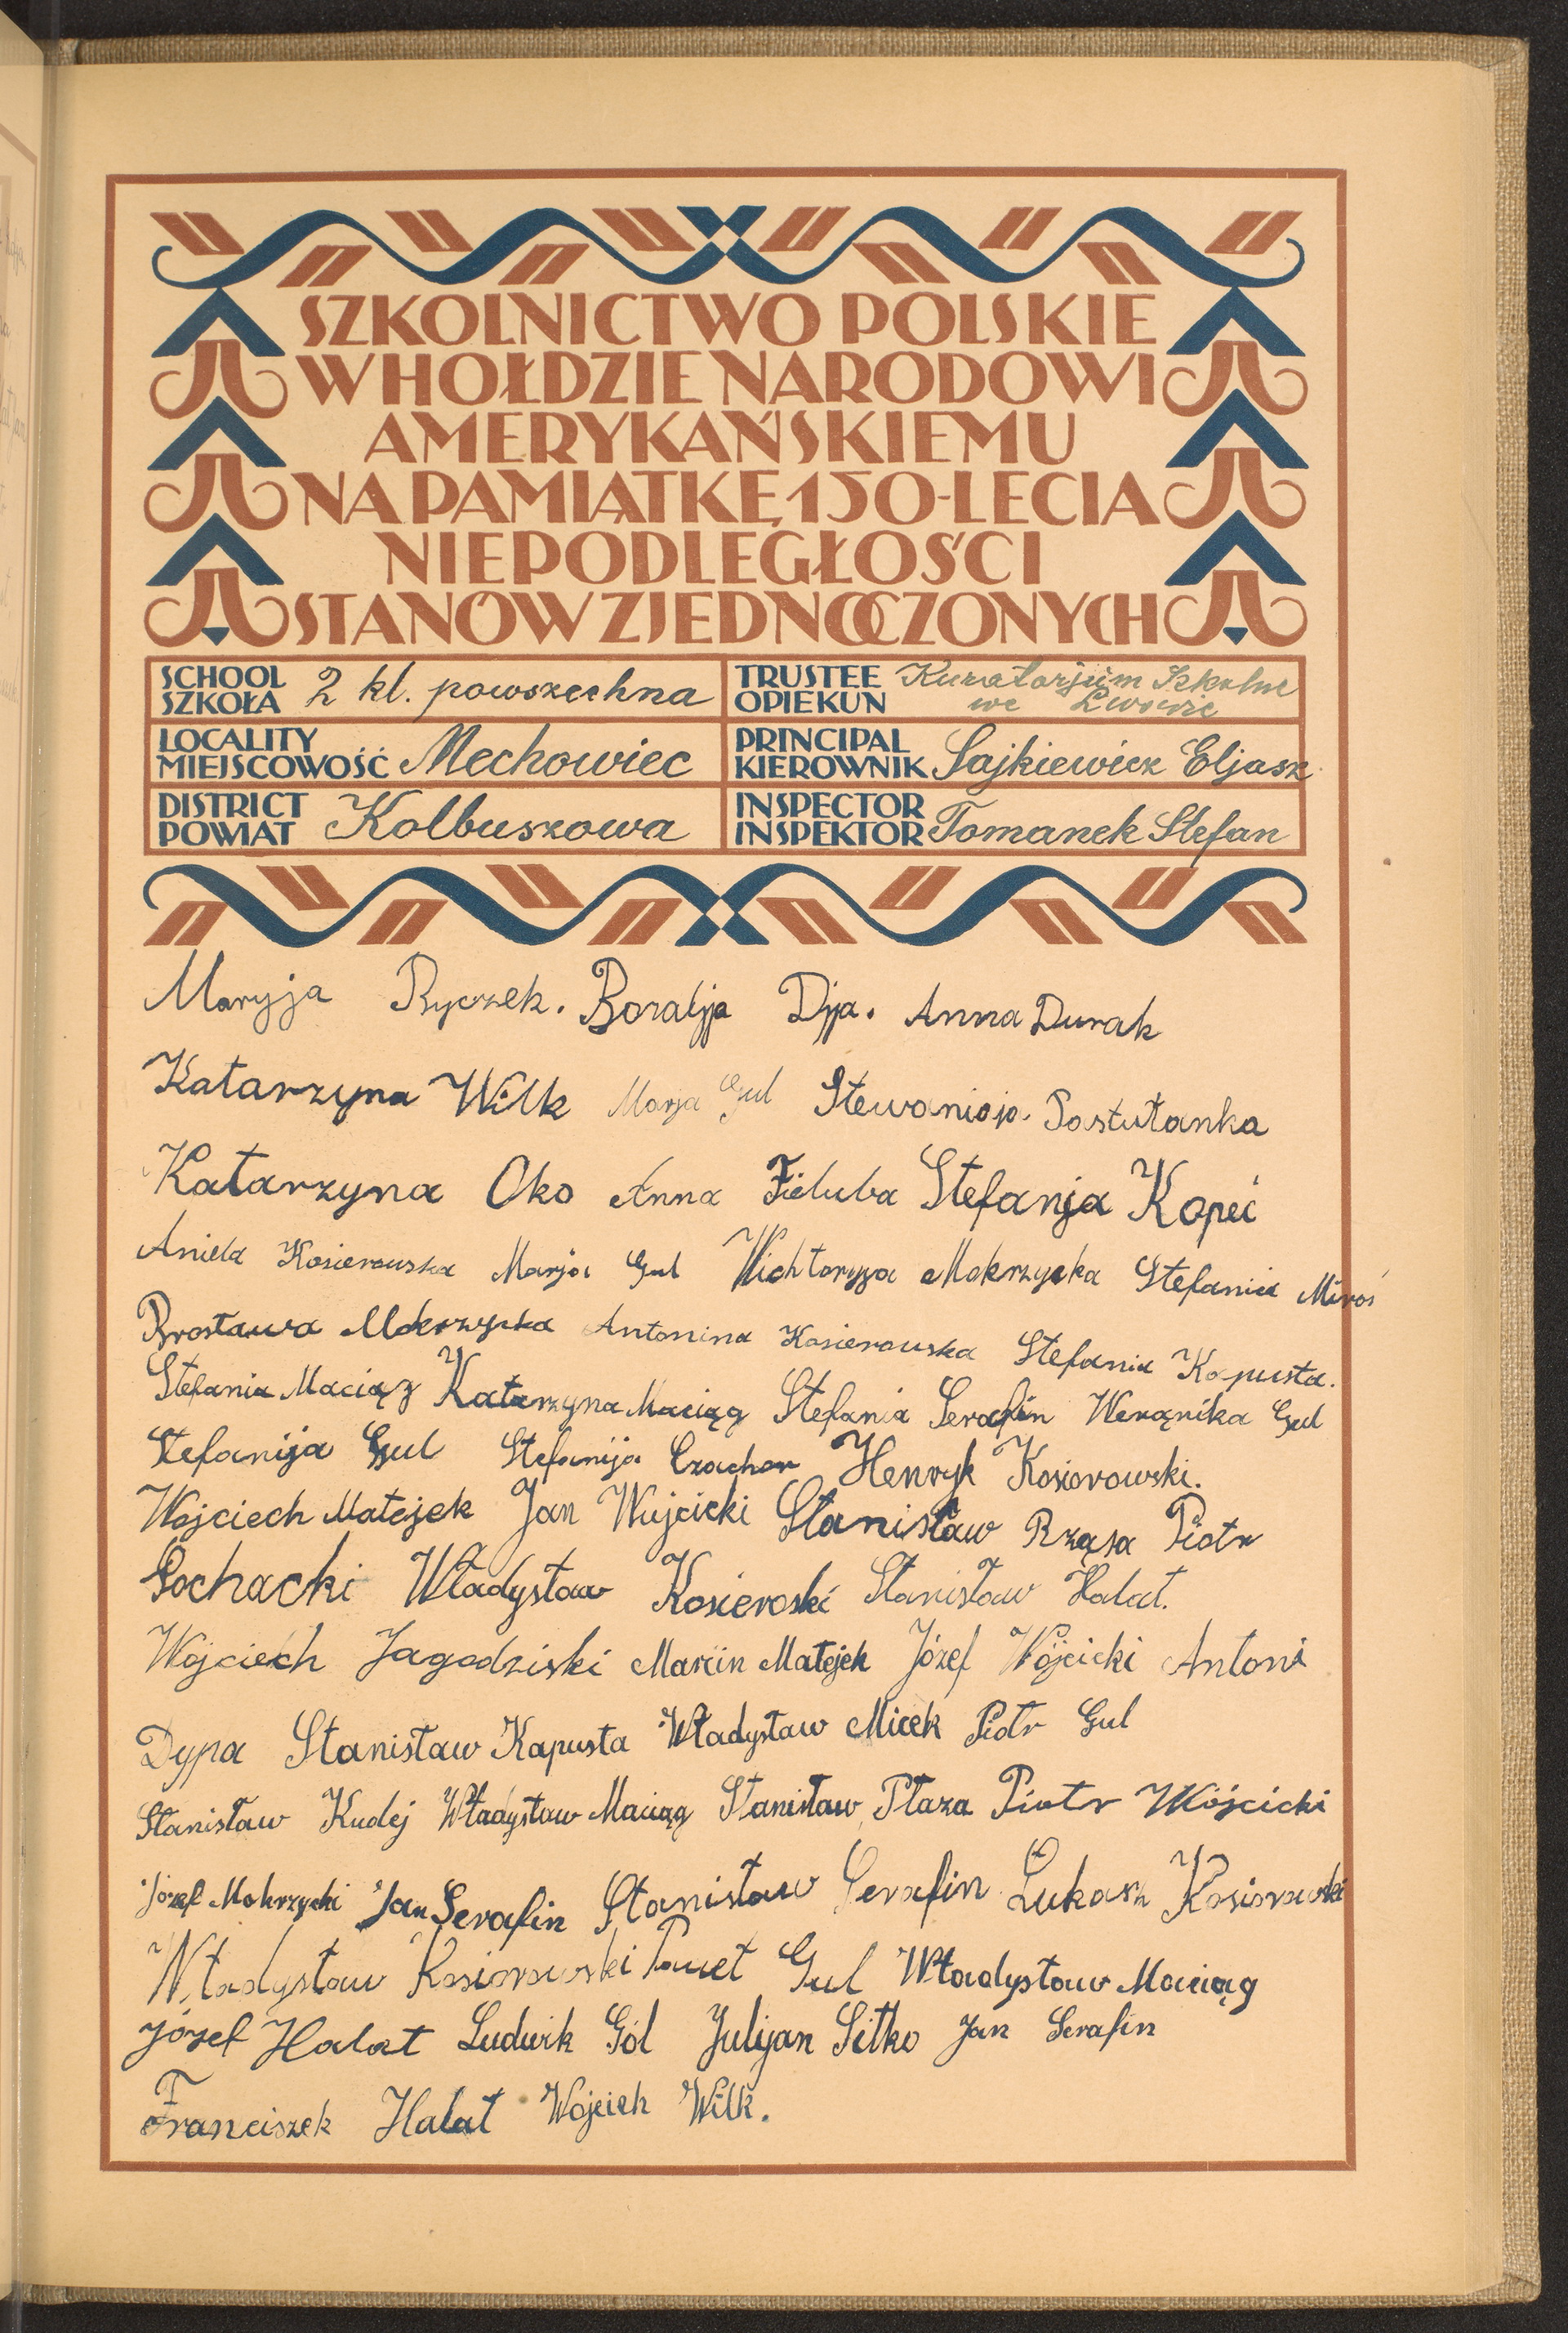 SZKOLNICTWO POLSKIE
W HOŁDZIE NARODOWI
AMERYKAŃSKIEMU
NA PAMIĄTKĘ 150-LECIA
NIEPODLEGŁOŚCI
STANÓW ZJEDNOCZONYCH
SCHOOL SZKOŁA 2 kl. powszechna
TRUSTEE OPIEKUN Kuratorjum Szkolne we Lwowie
LOCALITY MIEJSCOWOŚĆ Mechowiec
PRINCIPAL KIEROWNIK Sajkiewicz Eljasz
DISTRICT POWIAT Kolbuszowa
INSPECTOR INSPEKTOR Tomanek Stefan
Maryja Ryczek. Dypa. Anna Durak
Katarzyna Wilk Marja Gul Stewanija
Katarzyna Oko Anna Zieluba Stefanja Kopeć
Aniela Kosierowska Marja Gul Wichtoryja Mokrzycka Stefania Miroś
Mokrzycka Antonina Kosierowska Stefania Kapusta.
Stefania Maciąg Katarzyna Maciąg Stefania Serafin Weranika Gul
Stefanija Gul Stefanija Czachor Henryk Kosiorowski.
Wojciech Matejek Jan Wujcicki Stanisław Rząsa Piotr
Sochacki Władysław Kosieroski Stanisław Halat.
Wojciech Jagodziski Marcin Matejek Józef Wójcicki Antoni
Dypa Stanisław Kapusta Władysław Micek Piotr Gul
Stanisław Kudej Władysław Maciąg Stanisław Płaza Piotr Wójcicki
Józef Mokrzycki Jan Serafin Stanisław Serafin Łukasz Kosiorowski
Władysław Kosiorowski Paweł Gul Władysław Maciąg
Józef Halat Ludwik Gól Julijan Sitko Jan Serafin
Franciszek Halat Wojcieh Wilk.